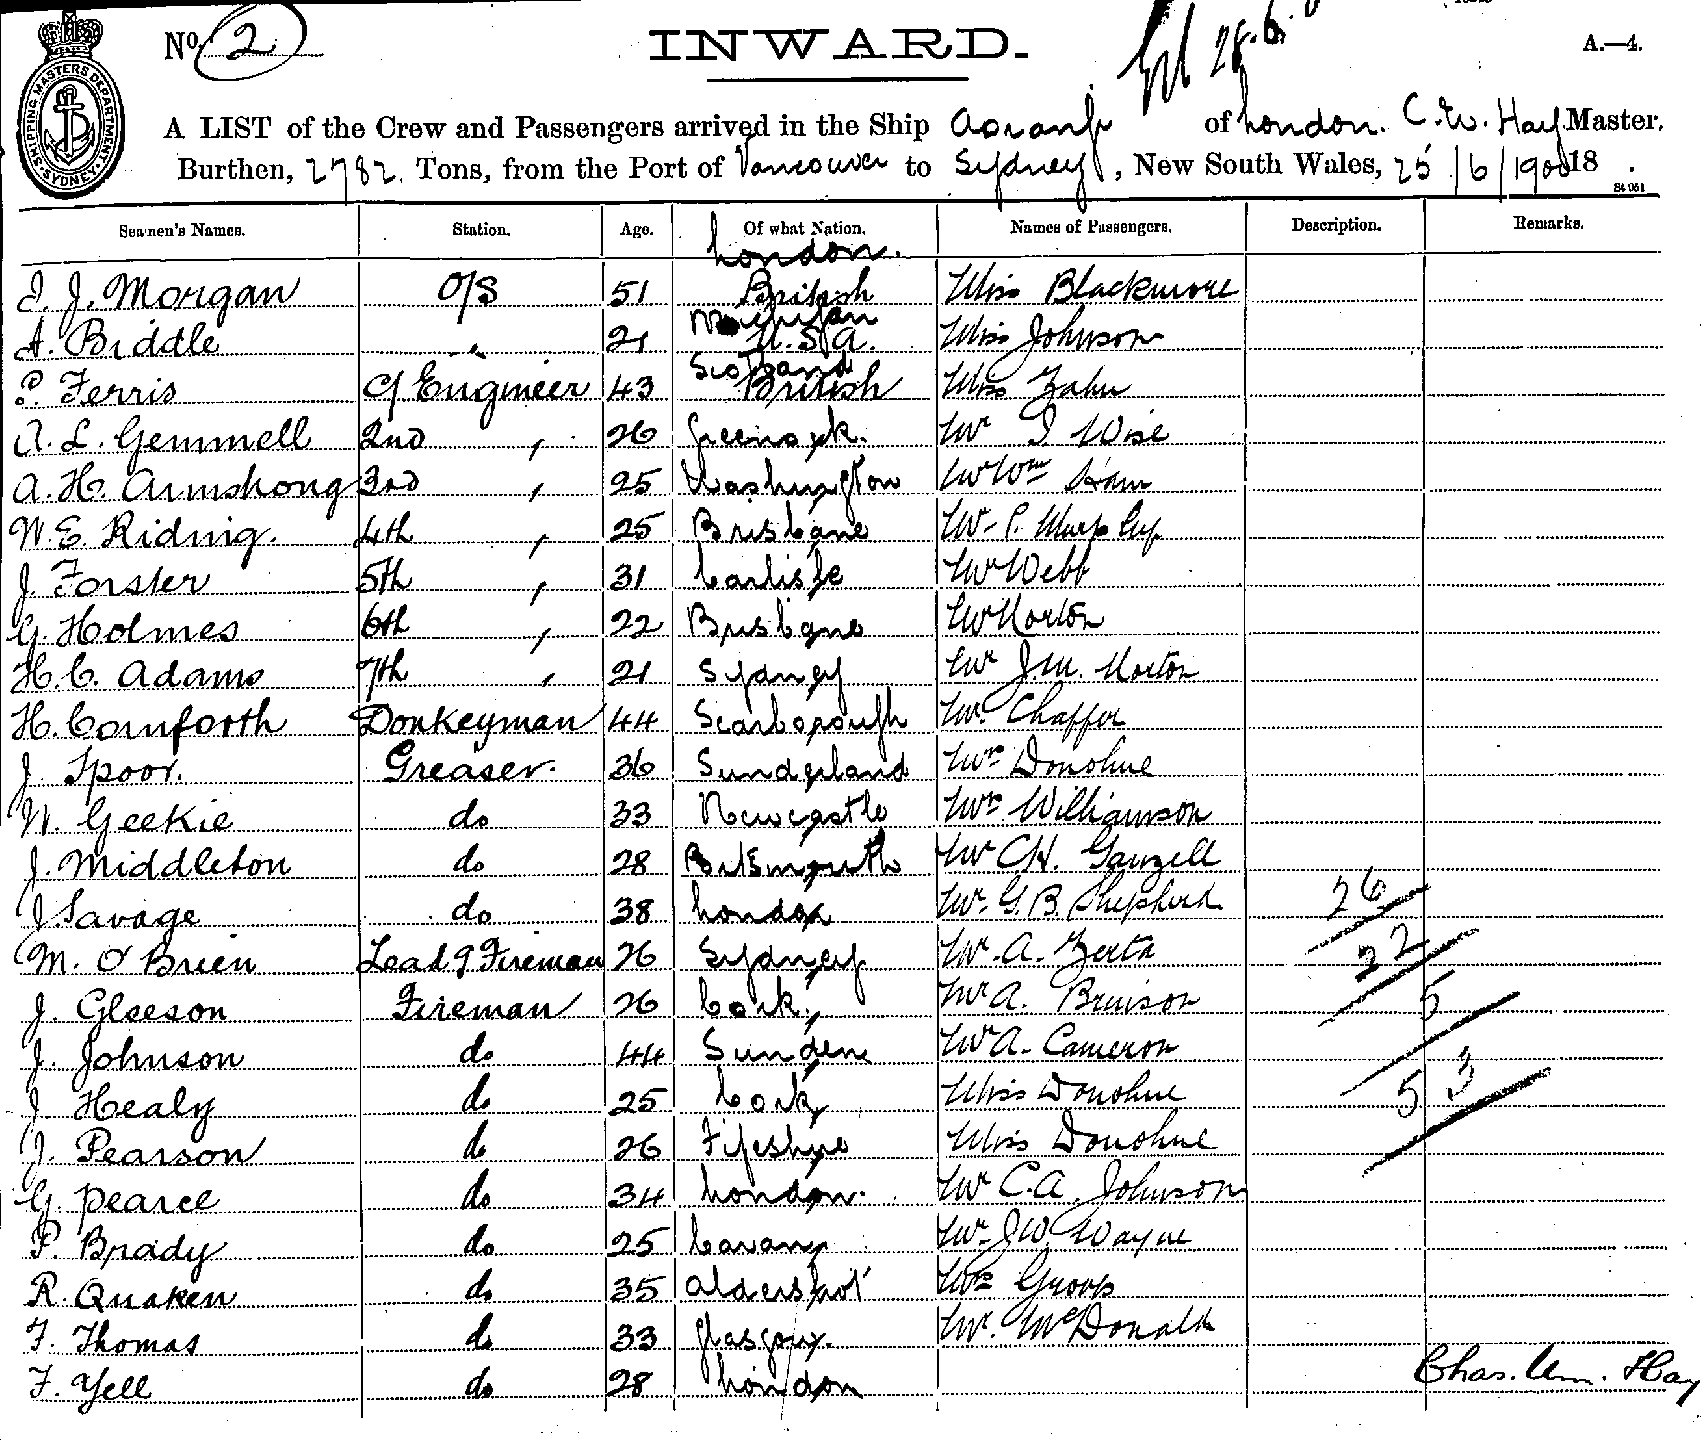 SHIPPING MASTERS DEPARTMENT
SYDNEY
No. 2
INWARD.
28.6.
A.—4.
A LIST of the Crew and Passengers arrived in the Ship Aorangi of London. C. W. Hay Master,
Burthen, 2782. Tons, from the Port of Vancouver to Sydney, New South Wales, 25/6/1900 18 .
Seamen's Names. Station. Age. Of what Nation. Names of Passengers. Description. Remarks.
London.
J. Morgan O/S 51 British Miss Blackmore
Michigan
A. Biddle " 21 U.S.A. Miss Johnson
Scotland
P. Ferris C/ Engineer 43 British Miss Zahn
A. L. Gemmell 2nd , 26 Greenock. Mr Wise
A. H. Armstrong 3rd , 25 Washington Mr Wm
W. E. Riding. 4th , 25 Brisbane Mr P.
J. Forster 5th , 31 Carlisle Mr Webb
G. Holmes 6th , 22 Brisbane Mr Norton
H. C. Adams 7th , 21 Sydney Mr J.M. Norton
H. Cornforth Donkeyman 44 Scarborough Mr. Chaffer
J. Spoor. Greaser. 36 Sunderland Mrs Donohue
W. Geekie do 33 Newcastle Mrs Williamson
J. Middleton do 28 Portsmouth Mr C.H. Ganzell
J Savage do 38 London Mr. G. B. Shepherd 26
M. O'Brien Leadg Fireman 26 Sydney Mr. A. Zerta 22
J. Gleeson Fireman 26 Cork, Mr A. Brunson 5
J. Johnson do 44 Sunden Mr A. Cameron
J Healy do 25 Cork, Miss Donohue 53
J. Pearson do 26 Fifeshire Miss Donohue
G. Pearce do 34 London. Mr C.A. Johnson
P. Brady do 25 Cavan, Mr. J.W. Wayne
R. Quaken do 35 Aldershot Mrs Groop
F. Thomas do 33 Glasgow. Mr. McDonald
F. Yell do 28 London
Chas. Wm. Hay